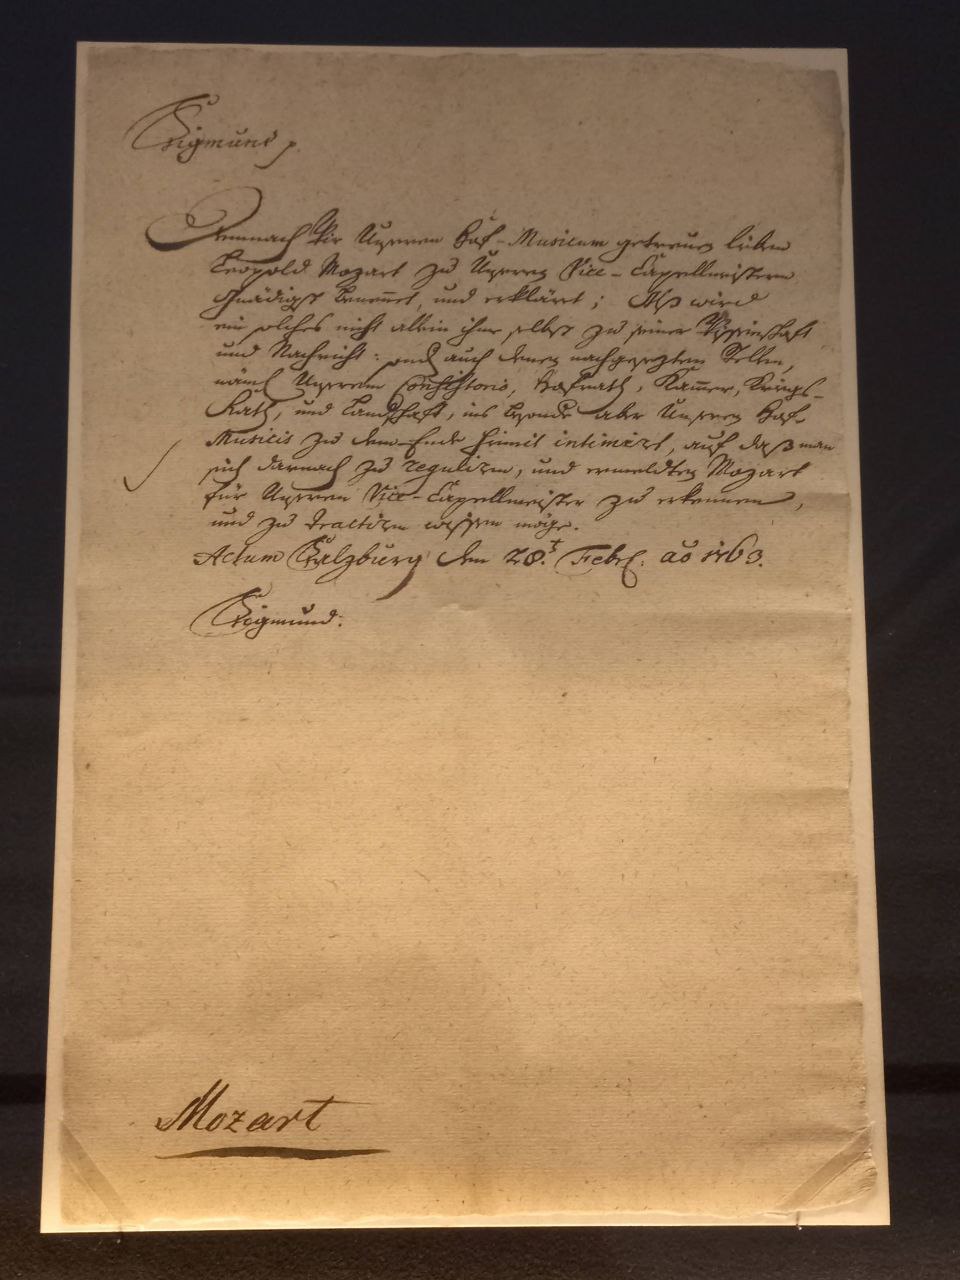 Sigmund p.
Demnach Wir Unseren Hof-Musicum getreuen lieben
Leopold Mozart zu Unseren Vice-Capellmeistern
Gnädigst benennet, und erkläret; Alß wird
ein solches nicht allein ihme selbst zu seiner Wissenschaft
und Nachricht: auch denen nachgesezten Stellen,
nämb Unserem Consistorio, Hofrath, Kammer, Kriegs-
Rath, und Landschaft, ins besonde aber Unseren Hof-
Musicis zu dem Ende hiemit intimirt, auf daß man
sich darnach zu regulirn, und ermeldten Mozart
für Unseren Vice-Capellmeister zu erkennen,
und zu tractirn wissen möge.
Actum Salzburg den 28.t Febr. aõ 1763.
Sigmund:
Mozart